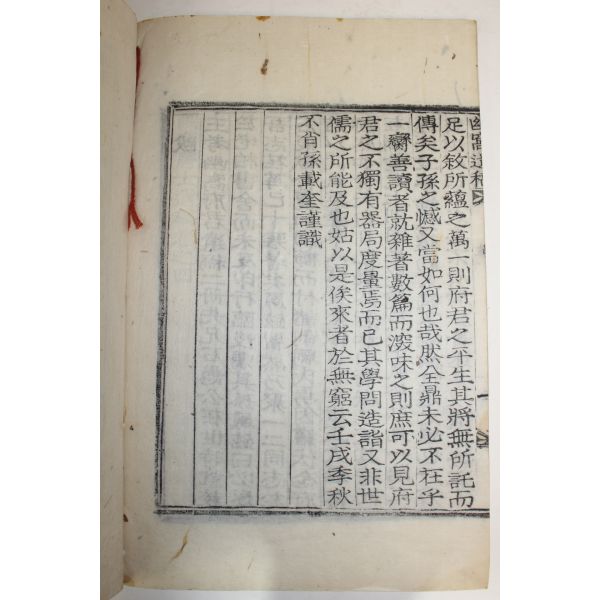 足以敘所蘊之萬一則府君之平生其將無所託而
傳矣子孫之憾又當如何也哉然全鼎未必不在乎
一臠善讀者就雜著數篇而潑味之則庶可以見府
君之不獨有器局度量焉而已其學問造詣又非世
儒之所能及也姑以是俟來者於無窮云壬戌季秋
不肖孫載奎謹識